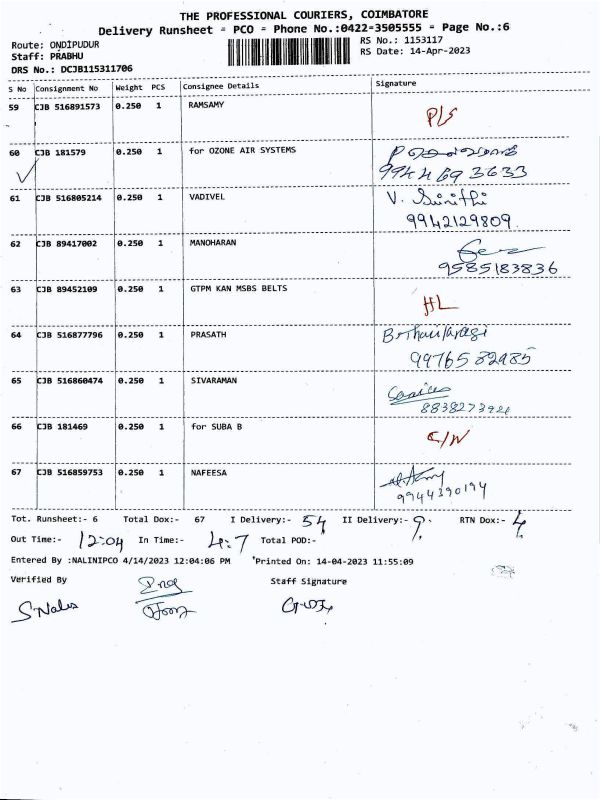 THE PROFESSIONAL COURIERS, COIMBATORE
Delivery Runsheet = PCO = Phone No.:0422-3505555 = Page No.:6
Route: ONDIPUDUR
RS No.: 1153117
Staff: PRABHU
RS Date: 14-Apr-2023
DRS No.: DCJB115311706
S No Consignment No Weight PCS Consignee Details Signature
59 CJB 516891573 0.250 1 RAMSAMY P/S
60 CJB 181579 0.250 1 for OZONE AIR SYSTEMS
9944693633
61 CJB 516805214 0.250 1 VADIVEL V.
9942129809
62 CJB 89417002 0.250 1 MANOHARAN
9585183836
63 CJB 89452109 0.250 1 GTPM KAN MSBS BELTS HL
64 CJB 516877796 0.250 1 PRASATH
9976582985
65 CJB 516860474 0.250 1 SIVARAMAN
66 CJB 181469 0.250 1 for SUBA B
67 CJB 516859753 0.250 1 NAFEESA
9944390194
Tot. Runsheet:- 6 Total Dox:- 67 I Delivery:- 54 II Delivery:- 9. RTN Dox:- 4
Out Time:- 12:04 In Time:- 4:7 Total POD:-
Entered By :NALINIPCO 4/14/2023 12:04:06 PM Printed On: 14-04-2023 11:55:09
Verified By Staff Signature